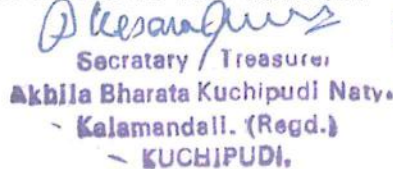 Secratary / Treasurer
Akhila Bharata Kuchipudi Naty.
- Kalamandali. (Regd.)
- KUCHIPUDI.